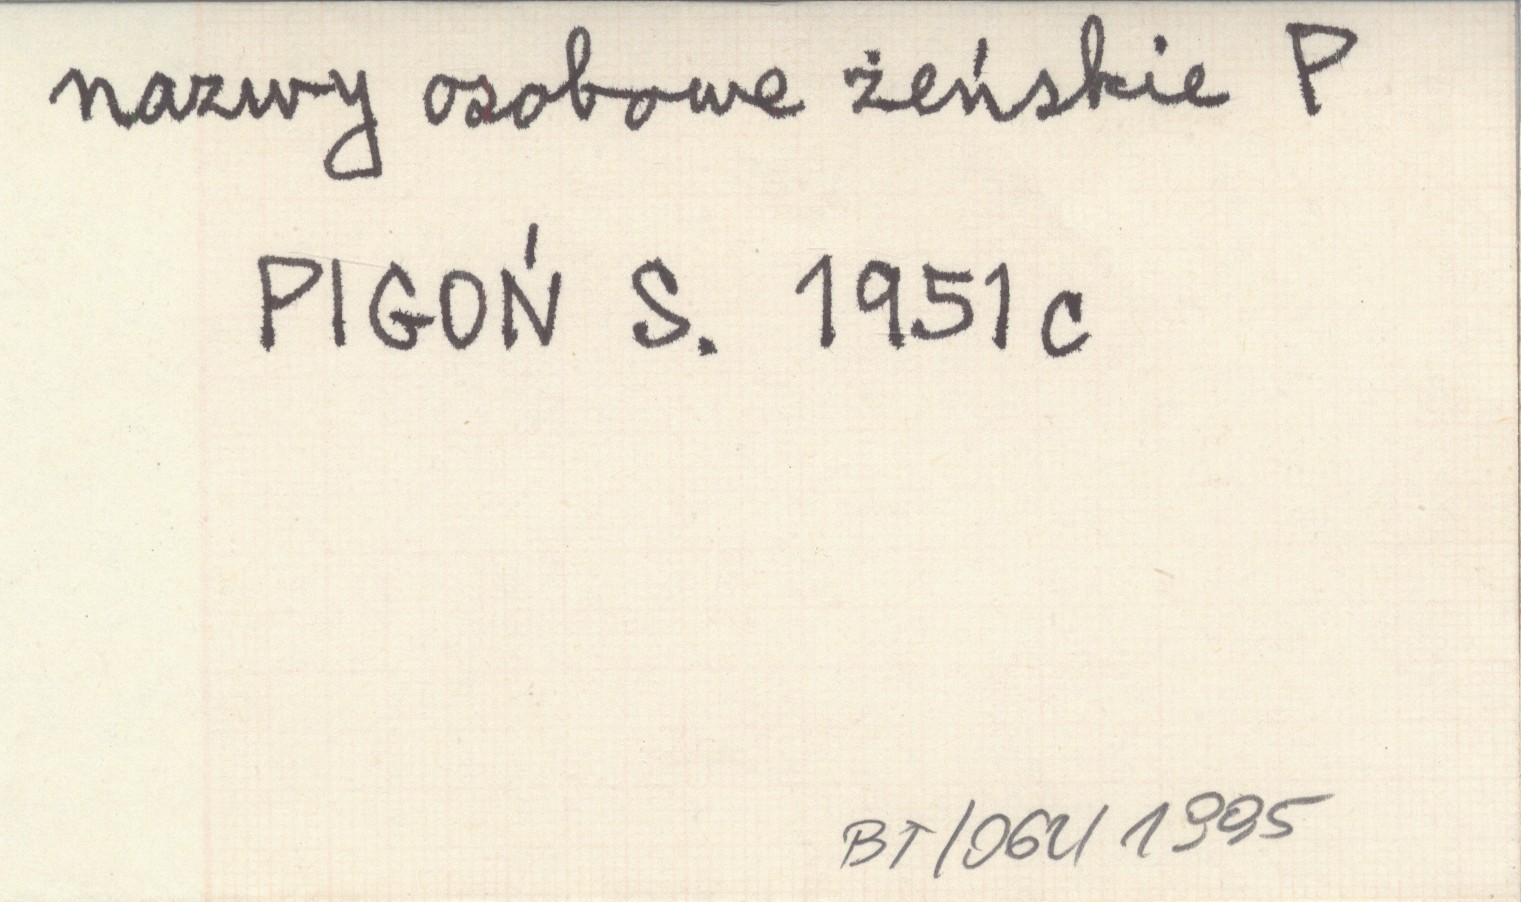 nazwy osobowe żeńskie P
PIGOŃ S. 1951c
BT/OGU 1995